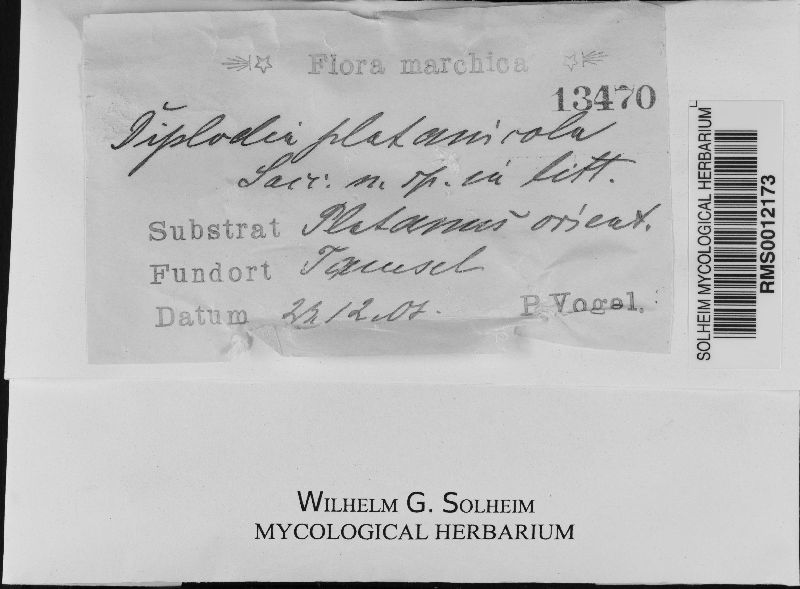 Flora marchica
13470
Diplodia platanicola
Sacc. n. sp. in litt.
Substrat Platanus orient.
Fundort Tamsel
Datum 12.05.
P. Vogel.
SOLHEIM MYCOLOGICAL HERBARIUM
RMS0012173
WILHELM G. SOLHEIM
MYCOLOGICAL HERBARIUM